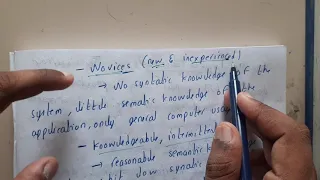 - Novices (new & inexperienced)
→ No syntatic knowledge of the
system, little sematic knowledge of the
application, only general computer use
- Knowledgeable, intermitte
→ reasonable semantic
but low synatic